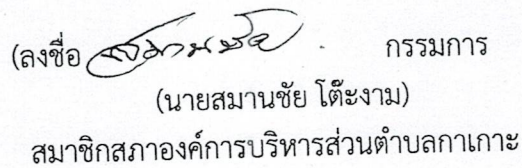 (ลงชื่อ สมานชัย กรรมการ
(นายสมานชัย โต๊ะงาม)
สมาชิกสภาองค์การบริหารส่วนตำบลกาเกาะ